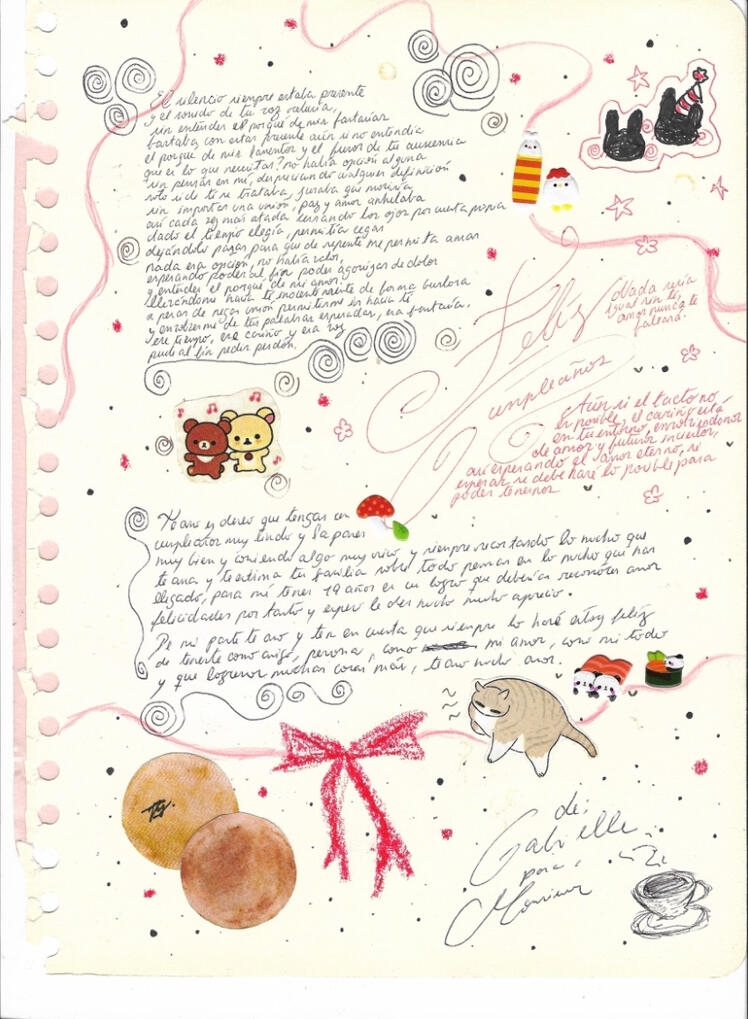 El silencio siempre estaba presente
y el sonido de tu voz valuria,
sin entender el porqué de mis fantasías
bastaba con estar presente aún si no entendía
el porque de mis lamentos y el furor de tu ausencia
que es lo que necesitas? no había opción alguna
sin pensar en mí, despreciando cualquier definición
solo si de ti se trataba, juraba que moriría
sin importar una unión, paz y amor anhelaba
así cada vez más atada cerrando los ojos por cuenta propia
dado el tiempo elegía, permitía cegar
dejándolo pasar para que de repente me permita amar
nada era opción, no había valor,
esperando poder al fin poder agonizar de dolor
y entender el porque de mi amor.
llevándome hacia ti inconscientemente de forma burlona
a pesar de negar unión permitirme en hacia ti
y envolverme de tus palabras esperadas, era fantasía,
ese tiempo, ese cariño y esa voz
pude al fin pedir perdón.
Feliz
cumpleaños
Nada sería
igual sin ti,
amor nunca te
faltará.
Aún si el tacto no
es posible, el cariño está
en tu entorno, envolviendonos
de amor y futuros inciertos,
así esperando el amor eterno, si
esperar se debe haré lo posible para
poder tenernos
Yo amor deseo que tengas un
cumpleaños muy lindo y la pases
muy bien y comiendo algo muy rico y siempre recordando lo mucho que
te ama y te estima tu familia sobre todo pensas en lo mucho que has
llegado, para mí tener 19 años es un logro que deberías reconocer amor
felicidades por tanto y espero le des mucho mucho aprecio.
De mi parte te amo y ten en cuenta que siempre lo haré estoy feliz
de tenerte como amigo, persona, como mi amor, como mi todo
y que logremos muchas cosas más, te amo mucho amor.
de:
Gabrielle
para: